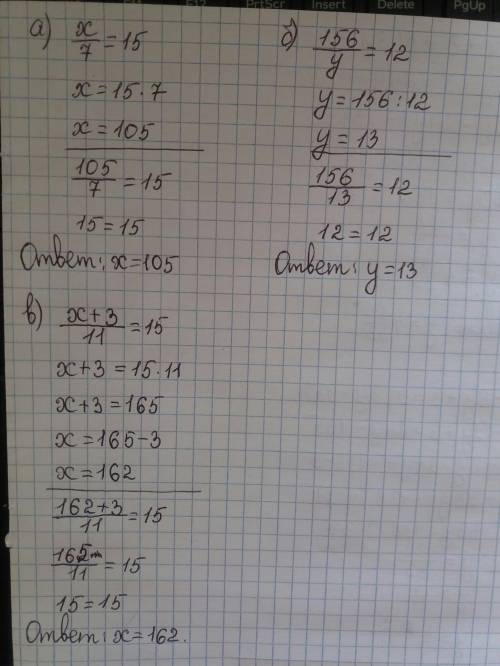 PrtScr Insert Delete PgUp
а) x/7 = 15
x = 15·7
x = 105
105/7 = 15
15 = 15
Ответ: x = 105
б) 156/y = 12
y = 156 : 12
y = 13
156/13 = 12
12 = 12
Ответ: y = 13
в) x+3/11 = 15
x+3 = 15·11
x+3 = 165
x = 165-3
x = 162
162+3/11 = 15
165/11 = 15
15 = 15
Ответ: x = 162.